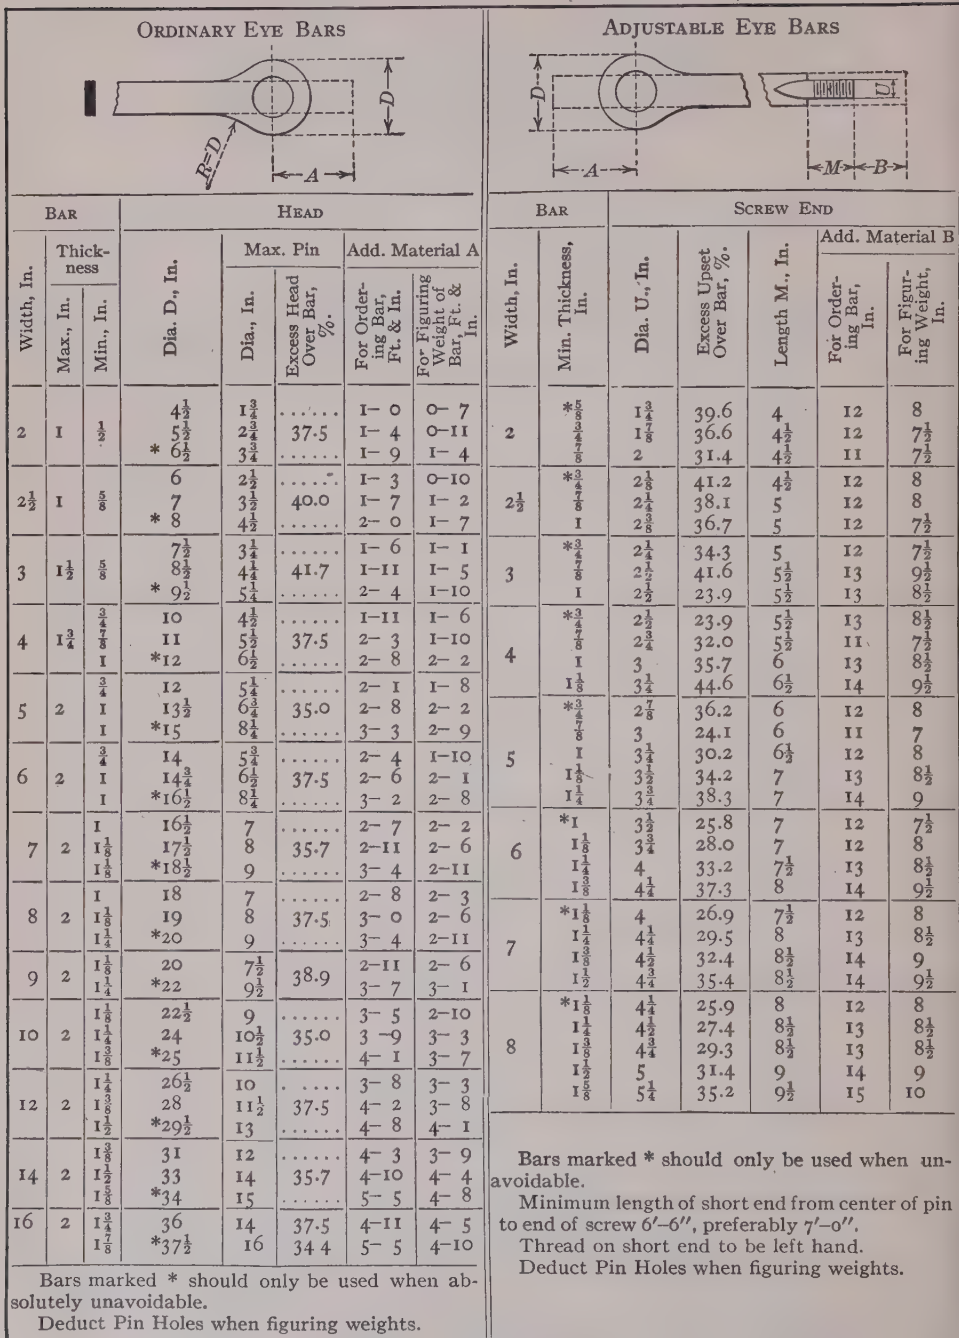 ORDINARY EYE BARS
D
R=D
A
BAR
HEAD
Width, In.
Thick-
ness
Max., In.
Min., In.
Dia. D., In.
Max. Pin
Dia., In.
Excess Head
Over Bar,
%.
Add. Material A
For Order-
ing Bar,
Ft. & In.
For Figuring
Weight of
Bar, Ft. &
In.
4½ 1¾ ...... 1– 0 0– 7
2 1 ½ 5½ 2¾ 37.5 1– 4 0–11
* 6½ 3¾ ...... 1– 9 1– 4
6 2½ ...... 1– 3 0–10
2½ 1 ⅝ 7 3½ 40.0 1– 7 1– 2
* 8 4½ ...... 2– 0 1– 7
7½ 3¼ ...... 1– 6 1– 1
3 1½ ⅝ 8½ 4¼ 41.7 1–11 1– 5
* 9½ 5¼ ...... 2– 4 1–10
¾ 10 4½ ...... 1–11 1– 6
4 1¾ ⅞ 11 5½ 37.5 2– 3 1–10
1 *12 6½ ...... 2– 8 2– 2
¾ 12 5¼ ...... 2– 1 1– 8
5 2 1 13½ 6¾ 35.0 2– 8 2– 2
1 *15 8¼ ...... 3– 3 2– 9
¾ 14 5¾ ...... 2– 4 1–10
6 2 1 14¾ 6½ 37.5 2– 6 2– 1
1 *16½ 8¼ ...... 3– 2 2– 8
1 16½ 7 ...... 2– 7 2– 2
7 2 1⅛ 17½ 8 35.7 2–11 2– 6
1⅛ *18½ 9 ...... 3– 4 2–11
1 18 7 ...... 2– 8 2– 3
8 2 1⅛ 19 8 37.5 3– 0 2– 6
1¼ *20 9 ...... 3– 4 2–11
9 2 1⅛ 20 7½ 38.9 2–11 2– 6
1¼ *22 9½ 3– 7 3– 1
1⅛ 22½ 9 ...... 3– 5 2–10
10 2 1¼ 24 10½ 35.0 3 –9 3– 3
1⅜ *25 11½ ...... 4– 1 3– 7
1¼ 26½ 10 . .... 3– 8 3– 3
12 2 1⅜ 28 11½ 37.5 4– 2 3– 8
1½ *29½ 13 ...... 4– 8 4– 1
1⅜ 31 12 ...... 4– 3 3– 9
14 2 1½ 33 14 35.7 4–10 4– 4
1⅝ *34 15 ...... 5– 5 4– 8
16 2 1¾ 36 14 37.5 4–11 4– 5
1⅞ *37½ 16 34 4 5– 5 4–10
Bars marked * should only be used when ab-
solutely unavoidable.
Deduct Pin Holes when figuring weights.
ADJUSTABLE EYE BARS
D
U
A
M
B
BAR
SCREW END
Width, In.
Min. Thickness,
In.
Dia. U., In.
Excess Upset
Over Bar, %.
Length M., In.
Add. Material B
For Order-
ing Bar,
In.
For Figur-
ing Weight,
In.
*⅝ 1¾ 39.6 4 12 8
2 ¾ 1⅞ 36.6 4½ 12 7½
⅞ 2 31.4 4½ 11 7½
*¾ 2⅛ 41.2 4½ 12 8
2½ ⅞ 2¼ 38.1 5 12 8
1 2⅜ 36.7 5 12 7½
*¾ 2¼ 34.3 5 12 7½
3 ⅞ 2½ 41.6 5½ 13 9½
1 2½ 23.9 5½ 13 8½
*¾ 2½ 23.9 5½ 13 8½
4 ⅞ 2¾ 32.0 5½ 11 7½
1 3 35.7 6 13 8½
1⅛ 3¼ 44.6 6½ 14 9½
*¾ 2⅞ 36.2 6 12 8
⅞ 3 24.1 6 11 7
5 1 3¼ 30.2 6½ 12 8
1⅛ 3½ 34.2 7 13 8½
1¼ 3¾ 38.3 7 14 9
*1 3½ 25.8 7 12 7½
6 1⅛ 3¾ 28.0 7 12 8
1¼ 4 33.2 7½ 13 8½
1⅜ 4¼ 37.3 8 14 9½
*1⅛ 4 26.9 7½ 12 8
7 1¼ 4¼ 29.5 8 13 8½
1⅜ 4½ 32.4 8½ 14 9
1½ 4¾ 35.4 8½ 14 9½
*1⅛ 4¼ 25.9 8 12 8
1¼ 4½ 27.4 8½ 13 8½
8 1⅜ 4¾ 29.3 8½ 13 8½
1½ 5 31.4 9 14 9
1⅝ 5¼ 35.2 9½ 15 10
Bars marked * should only be used when un-
avoidable.
Minimum length of short end from center of pin
to end of screw 6′–6″, preferably 7′–0″.
Thread on short end to be left hand.
Deduct Pin Holes when figuring weights.